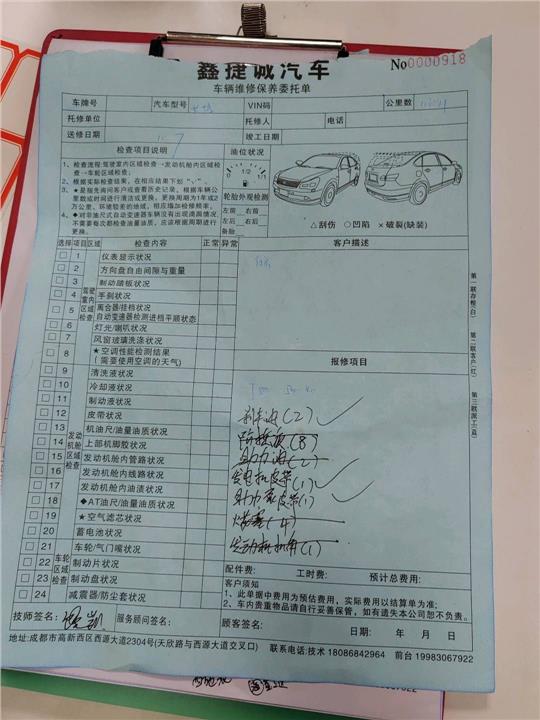 鑫捷诚汽车
No0000918
车辆维修保养委托单
车牌号 汽车型号 VIN码 公里数
托修单位 托修人 电话
送修日期 竣工日期
检查项目说明
1、检查流程:驾驶室内区域检查→发动机舱内区域检查
→车轮区域检查。
2、根据实际检查结果，在相应结果下划"√"。
油位状况
0 1/2 1/1
轮胎外观检测
左前 右前
左后 右后
备胎
△刮伤 ○凹陷 ×破裂(缺装)
选择 项目区域 检查内容 正常 异常 客户描述
驾驶室内区域检查
1 仪表显示状况
2 方向盘自由间隙与重量
3 制动踏板状况
4 手刹状况
5 离合器/挂档状况
自动变速器检测进档平顺状态
6 灯光/喇叭状况
7 风窗玻璃洗涤状况
8 ★空调性能检测结果
(需要使用空调的天气)
报修项目
发动机舱区域检查
9 清洗液状况
10 冷却液状况
11 制动液状况
12 皮带状况
13 机油尺/油量油质状况
14 上部机脚胶状况
15 发动机舱内管路状况
16 发动机舱内线路状况
17 发动机舱内油渍状况
18 ◆AT油尺/油量油质状况
19 ★空气滤芯状况
20 蓄电池状况
车轮区域检查
21 车轮/气门嘴状况
22 制动片状况
23 制动盘状况
24 减震器/防尘套状况
刹车油(2)
防冻液(8)
助力油(2)
发电机皮带(1)
助力泵皮带(1)
火花塞(4)
发动机机角(1)
配件费: 工时费: 预计总费用:
客户须知
1、此单据中费用为预估费用，实际费用以结算单为准;
2、车内贵重物品请自行妥善保管，如有遗失本公司恕不负责。
技师签名: 服务顾问签名: 顾客签名: 日期: 年 月 日
地址:成都市高新西区西源大道2304号(天欣路与西源大道交叉口) 联系电话:技术 18086842964 前台 19983067922
第一联存根(白) 第二联客户(红) 第三联派工(蓝)